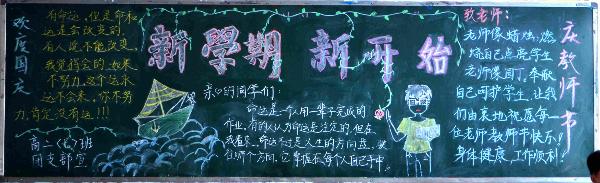 欢度国庆
有命运,但是命和
运是会改变的,
有人说不能改变,
我觉得会的,如果
不努力,这个运永
远不会来,你不努
力,肯定没有运!!!
高二<七>班
团支部宣
新學期 新开始
亲爱的同学们:
命运是一个人用一辈子完成的
作业,有的人认为命运是注定的,但在
我看来,命运不过是人生的方向盘,
往哪个方向,它掌握在每个人自己手中!
致老师:
老师像蜡烛,燃
烧自己点亮学生
老师像园丁,奉献
自己呵护学生,让我
们由衷地祝愿每一
位老师:教师节快乐!
身体健康 工作顺利!
庆教师节